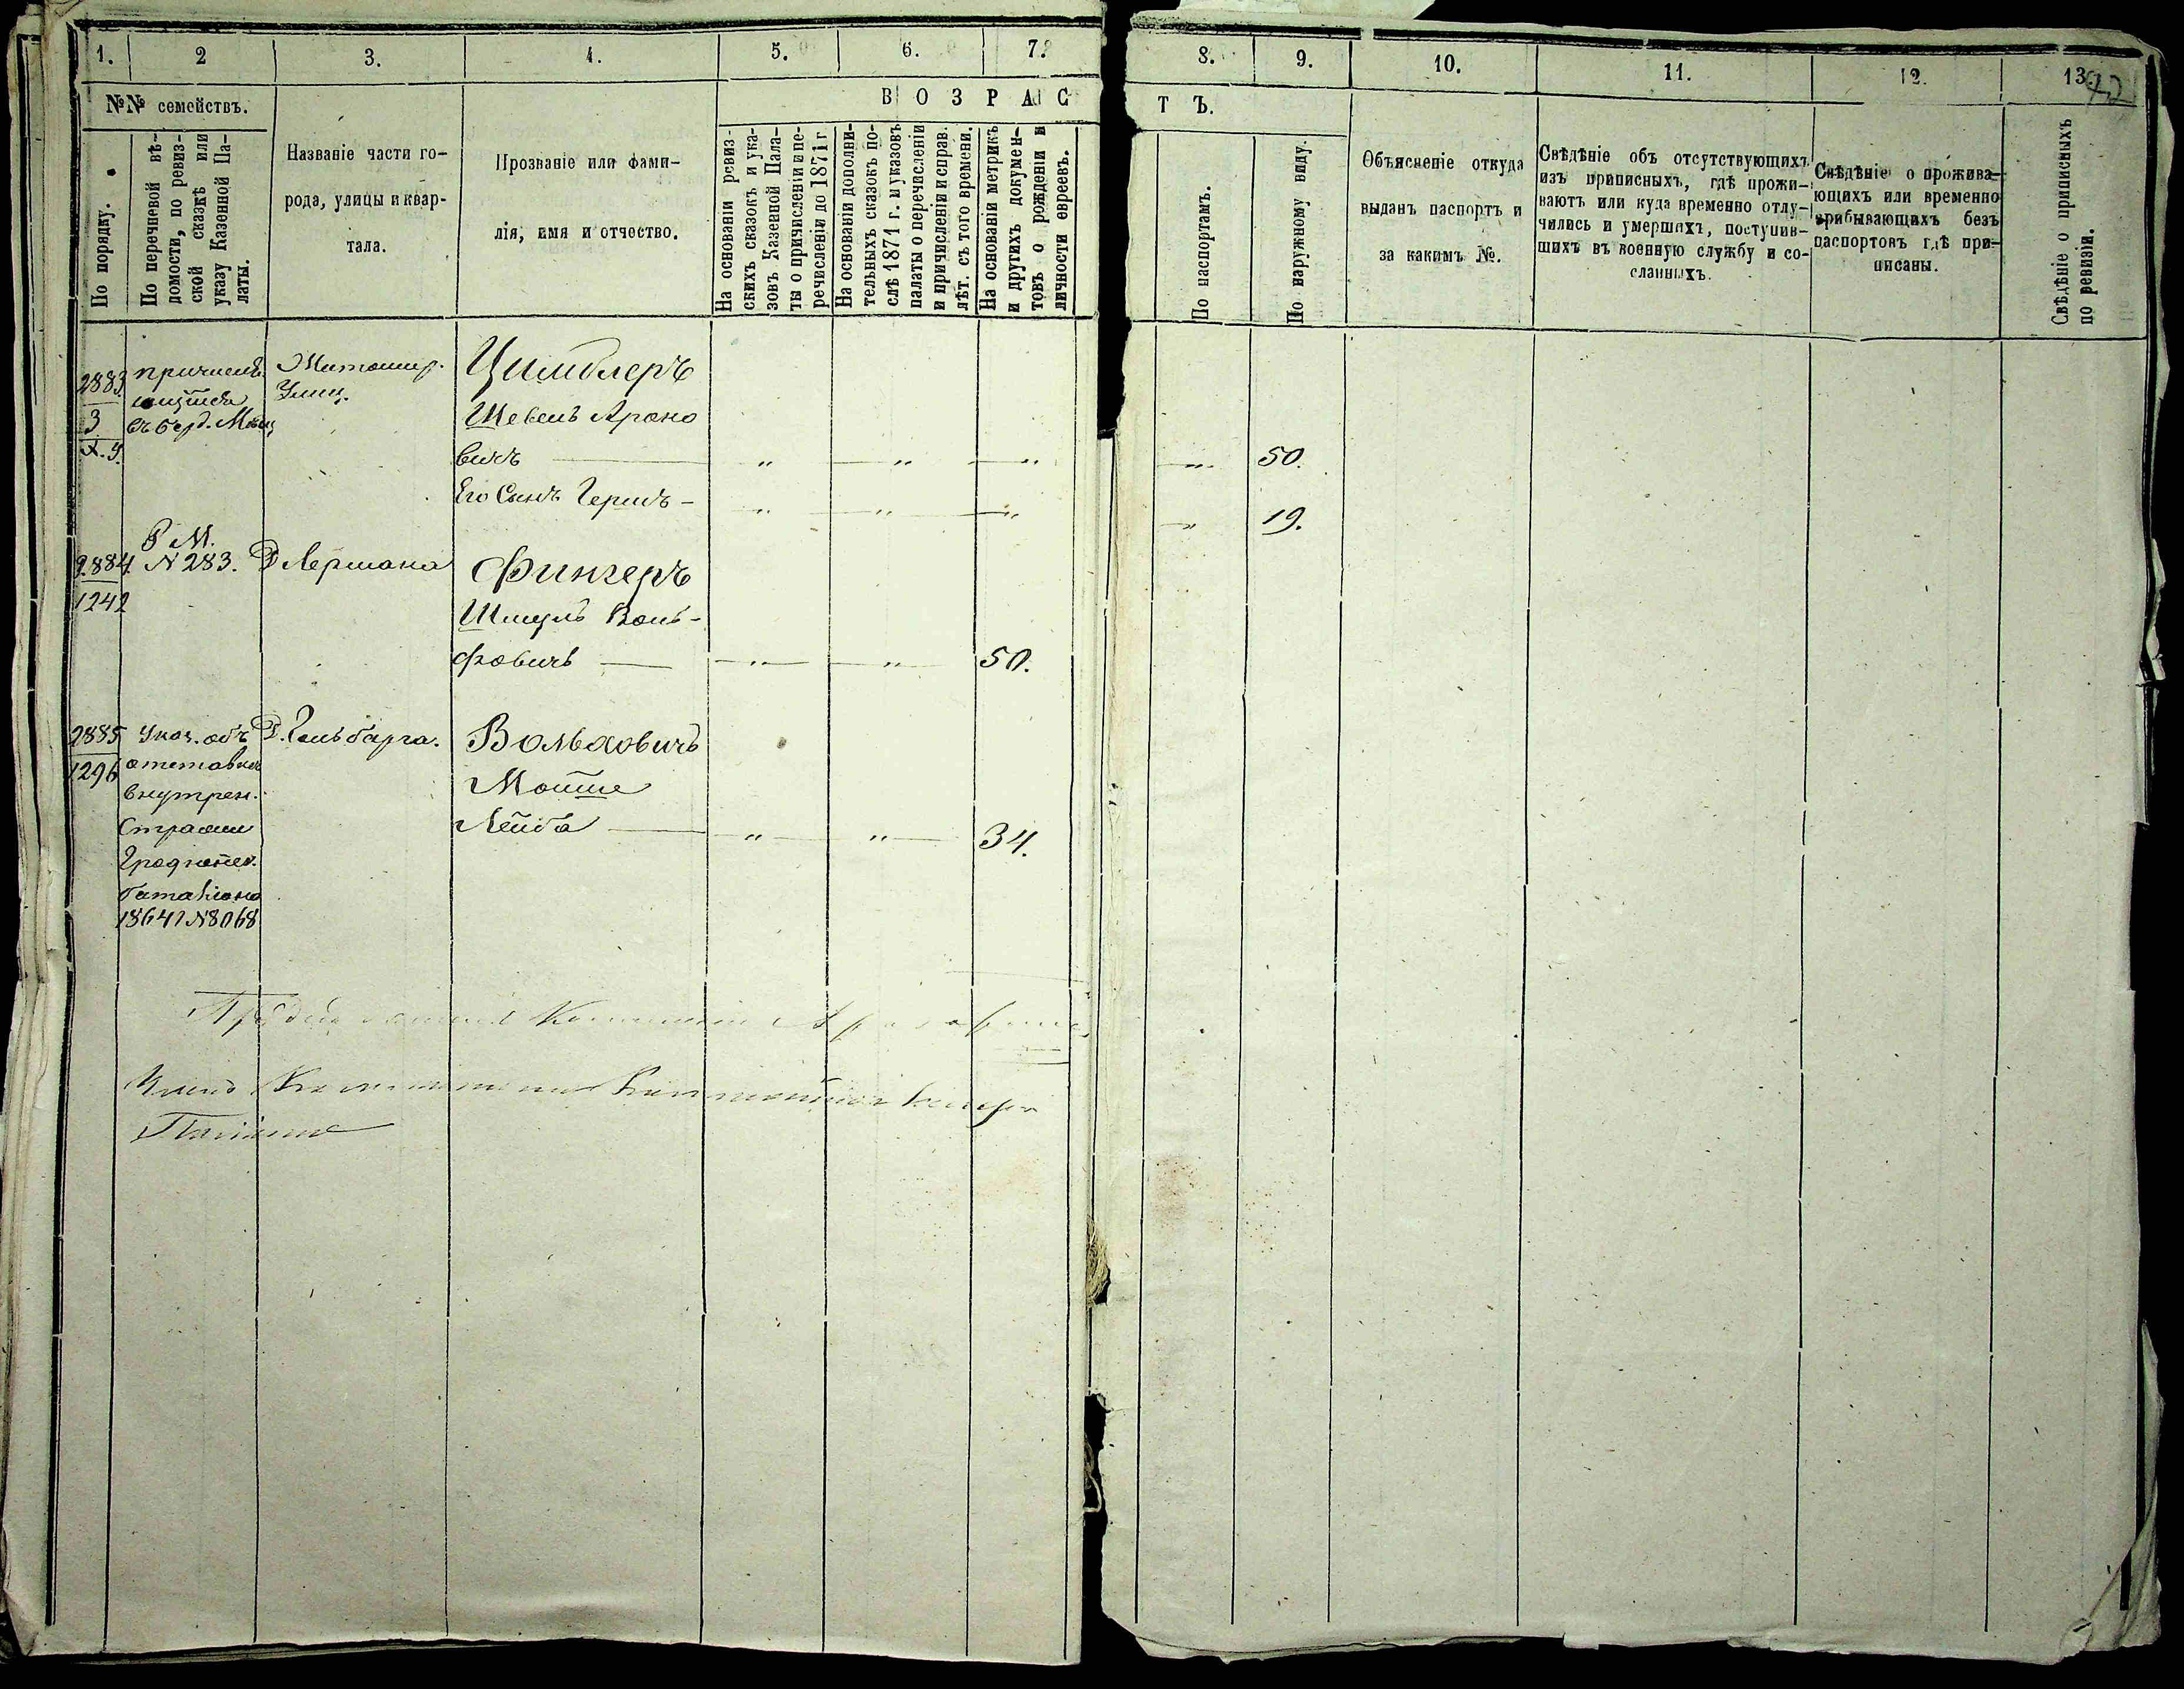 1. 2 3. 4. 5. 6. 7. 8. 9. 10. 11. 12. 13
№№ семействъ.
В О З Р А С Т Ъ.
По порядку.
По перечневой вѣ-
домости, по ревиз-
ской сказкѣ или
указу Казенной Па-
латы.
Названіе части го-
рода, улицы и квар-
тала.
Прозваніе или фами-
лія, имя и отчество.
На основаніи ревиз-
скихъ сказокъ и ука-
зовъ Казенной Пала-
ты о причисленіи и пе-
речисленіи до 1871 г
На основаніи дополни-
тельныхъ сказокъ по-
слѣ 1871 г. и указовъ
палаты о перечисленіи
и причисленіи и справ.
лѣт. съ того времени.
На основаніи метрикъ
и другихъ докумен-
товъ о рожденіи и
личности евреевъ.
По паспортамъ.
По наружному виду.
Объясненіе откуда
выданъ паспортъ и
за какимъ №.
Свѣдѣніе объ отсутствующихъ
изъ приписныхъ, гдѣ прожи-
ваютъ или куда временно отлу-
чились и умершихъ, поступив-
шихъ въ военную службу и со-
сланныхъ.
Свѣдѣніе о прожива-
ющихъ или временно
прибывающихъ безъ
паспортовъ гдѣ при-
писаны.
Свѣдѣніе о приписныхъ
по ревизіи.
2883
3
Цимблеръ
ШевельАроно
вичъ — " — " — " — " 50.
Его Сынъ Гершъ — " — " — " — " 19.
Р М.
2884. N 283. Д Лермана Фингеръ
1242
Шмуль Воль-
фовичъ — " — " 50.
2885 Указ. объ Д. Гольбарга. Вольховичъ
1296 отставке Мошше
внутрен. Лейба — " — " 34.
Стражи
баталіона
1864 г N 8068
Членъ